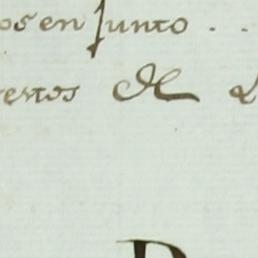 os en Junto . .
ertos de L